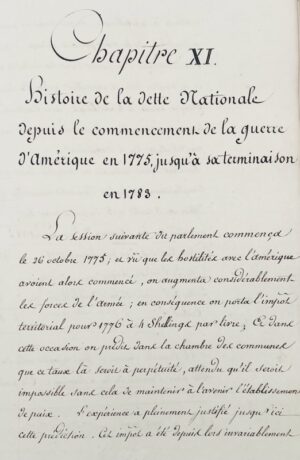 Chapitre XI.
Histoire de la dette Nationale
depuis le commencement de la guerre
d'Amérique en 1775, jusqu'à sa terminaison
en 1783.
La session suivante du parlement commença
le 26 octobre 1775; et vû que les hostilités avec l'amérique
avoient alors commencé, on augmenta considérablement
les forces de l'armée; en conséquence on porta l'impôt
territorial pour 1776 à 4 Shellings par livre; Et dans
cette occasion on prédit dans la chambre des communes
que ce taux là seroit à perpétuité, attendu qu'il seroit
impossible sans cela de maintenir à l'avenir l'établissement
de paix. L'expérience a pleinement justifié jusqu'ici
cette prédiction. Cet impôt a été depuis lors invariablement